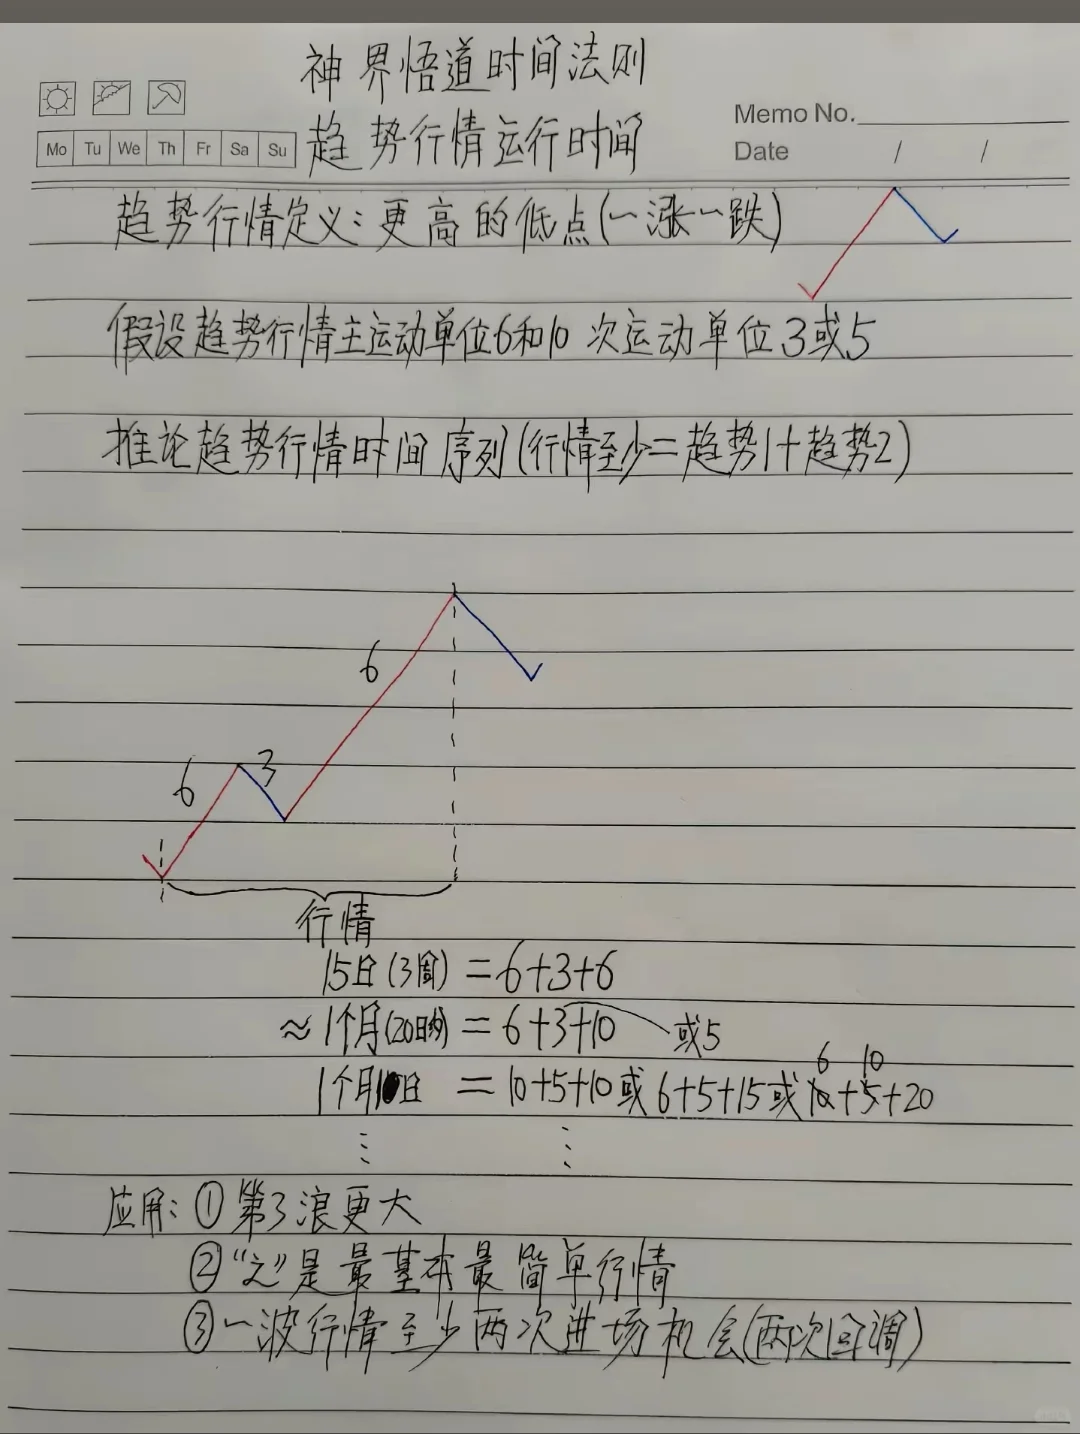 神界悟道时间法则
Memo No.
趋势行情运行时间
Mo Tu We Th Fr Sa Su
Date / /
趋势行情定义:更高的低点(一涨一跌)
假设趋势行情主运动单位6和10 次运动单位3或5
推论趋势行情时间序列(行情至少=趋势1+趋势2)
6
6 3
行情
15日(3周)=6+3+6
≈1个月(20日)=6+3+10 或5
6 10
1个月10日 =10+5+10或6+5+15或10+5+20
⋮ ⋮
应用:①第3浪更大
②“之”是最基本最简单行情
③一波行情至少两次进场机会(两次回调)